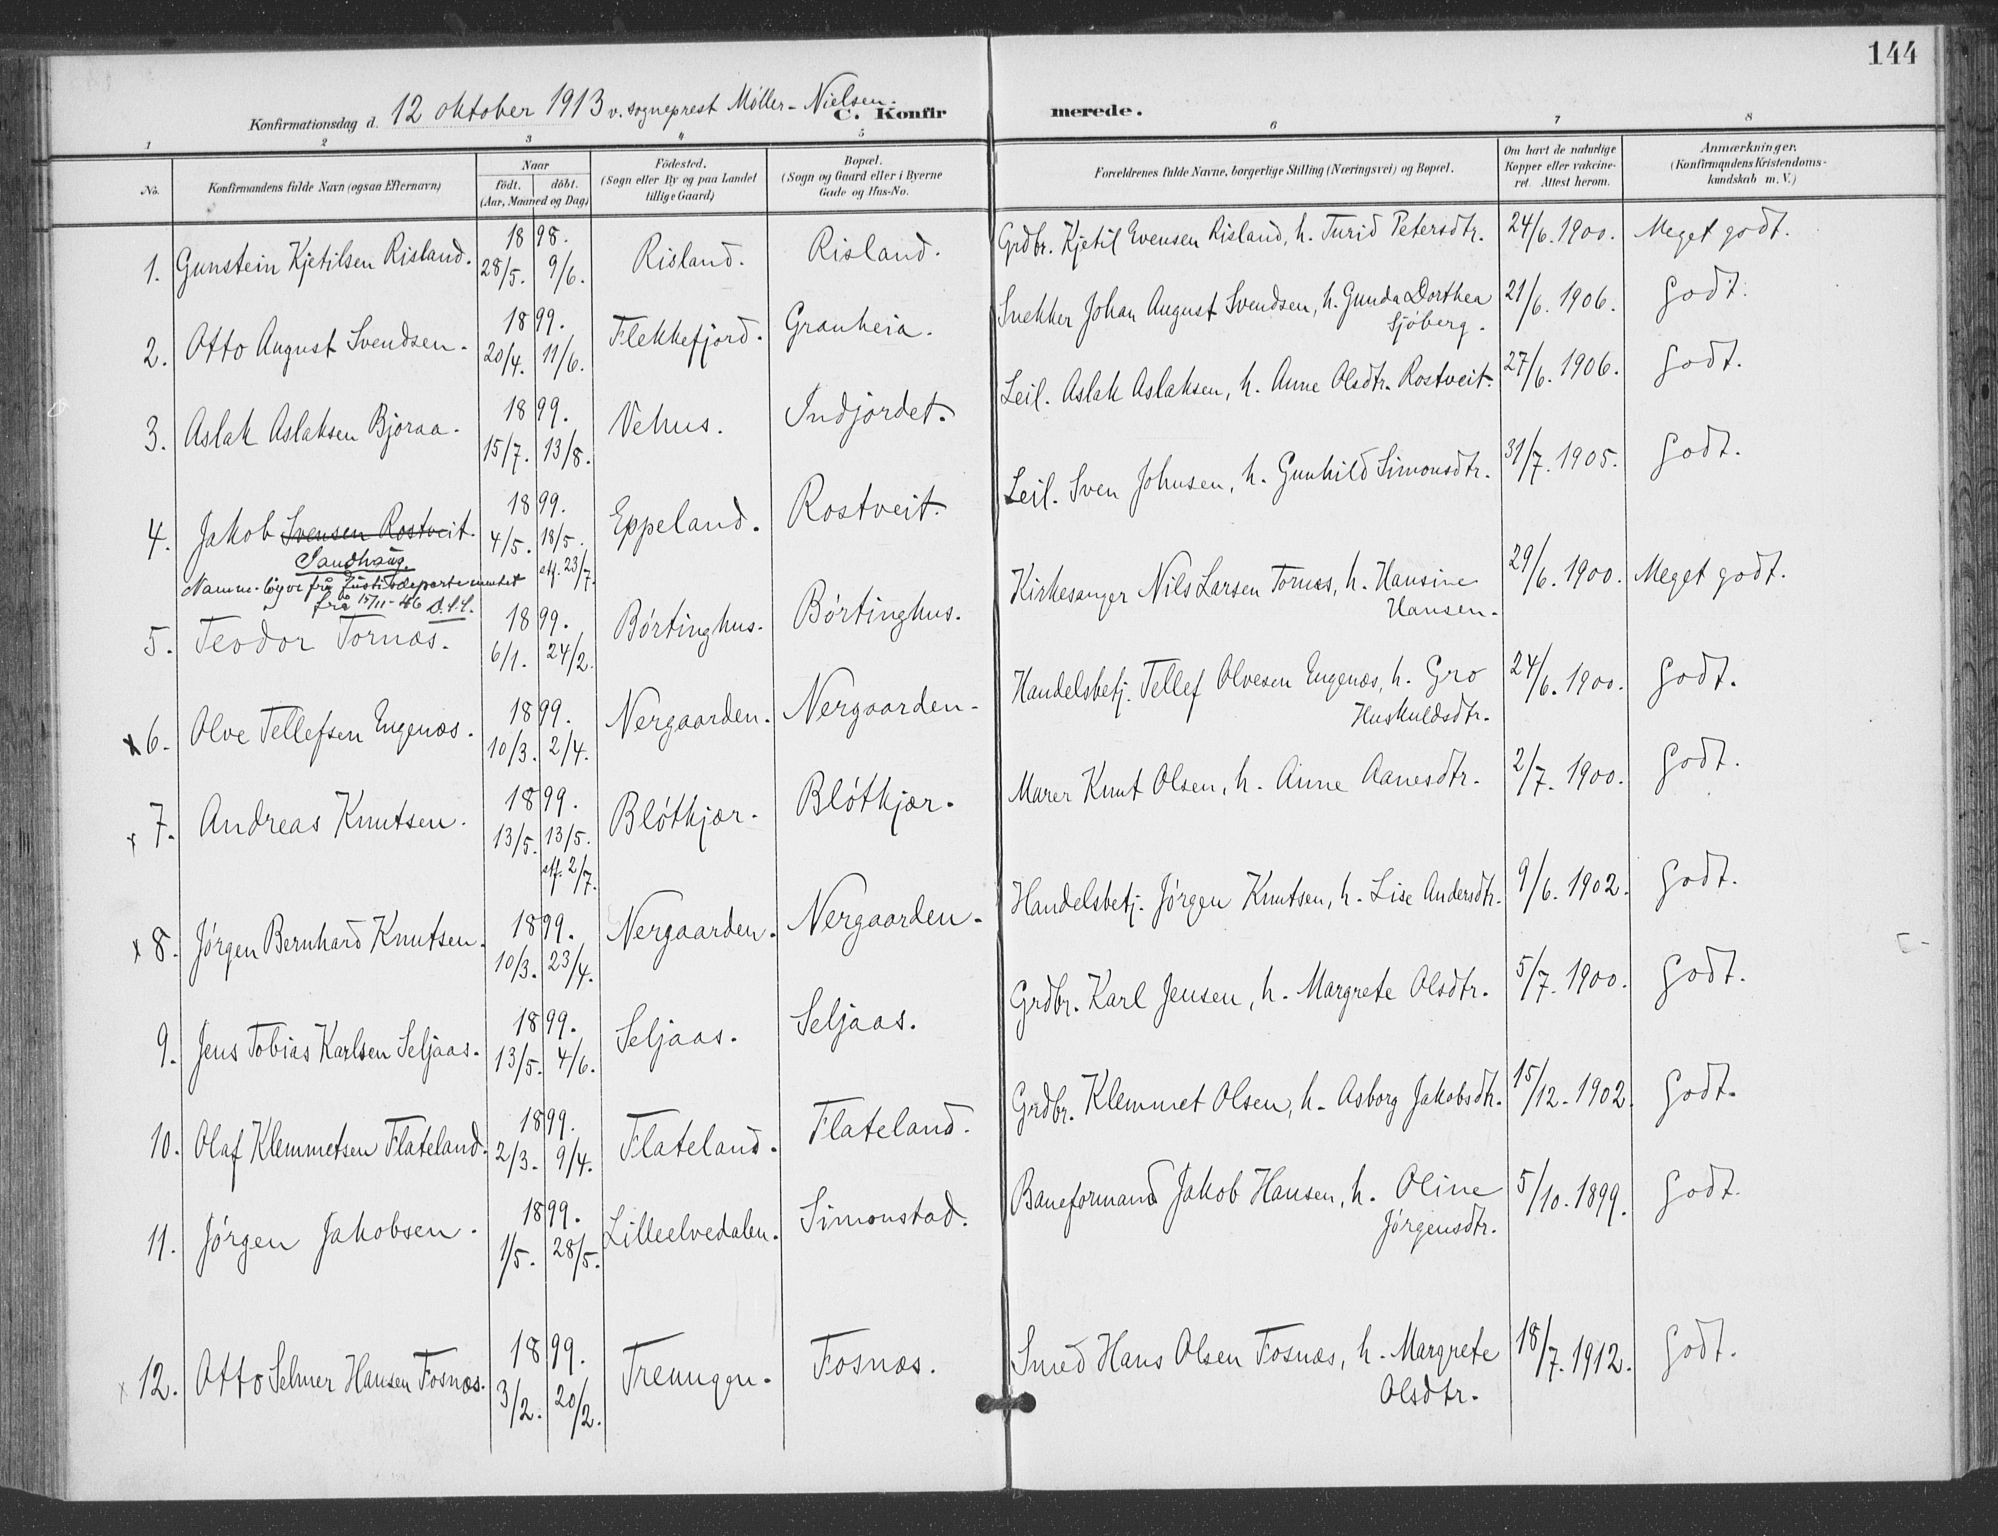 144
Konfirmationsdag d. 12 oktober 1913 v. sogneprest Møller-Nielsen.
C. Konfirmerede.
1 2 3 4 5 6 7 8
No. Konfirmandens fulde Navn (ogsaa Efternavn) Naar født. døbt. (Aar, Maaned og Dag) Fødested. (Sogn eller By og paa Landet tillige Gaard) Bopæl. (Sogn og Gaard eller i Byerne Gade og Hus-No. Forældrenes fulde Navne, borgerlige Stilling (Næringsvei) og Bopæl. Om havt de naturlige Kopper eller vakcineret. Attest herom. Anmærkninger. (Konfirmandens Kristendomskundskab m. V.)
1. Gunstein Kjetilsen Risland. 1898. 28/5. 9/6. Risland. Risland. Grdbr. Kjetil Evensen Risland, h. Turid Petersdtr. 24/6. 1900. Meget godt.
2. Otto August Svendsen. 1899. 20/4. 11/6. Flekkefjord. Granheia. Snekker Johan August Svendsen, h. Gunda Dorthea Sjøberg. 21/6. 1906. Godt.
3. Aslak Aslaksen Bjoraa. 1899. 15/7. 13/8. Vehus. Indjordet. Leil. Aslak Aslaksen, h. Anne Olsdtr. Rostveit. 27/6. 1906. Godt.
4. Jakob Svensen Rostveit. 1899. 4/5. 18/5. Eppeland. Rostveit. Leil. Sven Johnsen, h. Gunhild Simonsdtr. 31/7. 1905. Godt.
Sandhaug. stf. 23/7.
Namne-løyve frå Justisdepartementet
frå 15/11-46 O.S.L.
5. Teodor Tornæs. 1899. 6/1. 24/2. Børtinghus. Børtinghus. Kirkesanger Nils Larsen Tornæs, h. Hansine Hansen. 29/6. 1900. Meget godt.
x6. Olve Tellefsen Engenæs. 1899. 10/3. 2/4. Nergaarden. Nergaarden. Handelsbetj. Tellef Olvesen Engenæs, h. Gro Huskuldsdtr. 24/6. 1900. Godt.
x7. Andreas Knutsen. 1899. 13/5. 13/5. stf. 2/7. Bløtkjær. Bløtkjær. Murer Knut Olsen, h. Anne Aanesdtr. 2/7. 1900. Godt.
x8. Jørgen Bernhard Knutsen. 1899. 10/3. 23/4. Nergaarden. Nergaarden. Handelsbetj. Jørgen Knutsen, h. Lise Andersdtr. 9/6. 1902. Godt.
9. Jens Tobias Karlsen Seljaas. 1899. 13/5. 4/6. Seljaas. Seljaas. Grdbr. Karl Jensen, h. Margrete Olsdtr. 5/7. 1900. Godt.
10. Olaf Klemmetsen Flateland. 1899. 2/3. 9/4. Flateland. Flateland. Grdbr. Klemmet Olsen, h. Asborg Jakobsdtr. 15/12. 1902. Godt.
11. Jørgen Jakobsen. 1899. 1/5. 28/5. Lilleelvedalen. Simonstad. Baneformand Jakob Hansen, h. Oline Jørgensdtr. 5/10. 1899. Godt.
x12. Otto Selmer Hansen Fosnæs. 1899. 3/2. 20/2. Treungen. Fosnæs. Smed Hans Olsen Fosnæs, h. Margrete Olsdtr. 18/7. 1912. Godt.